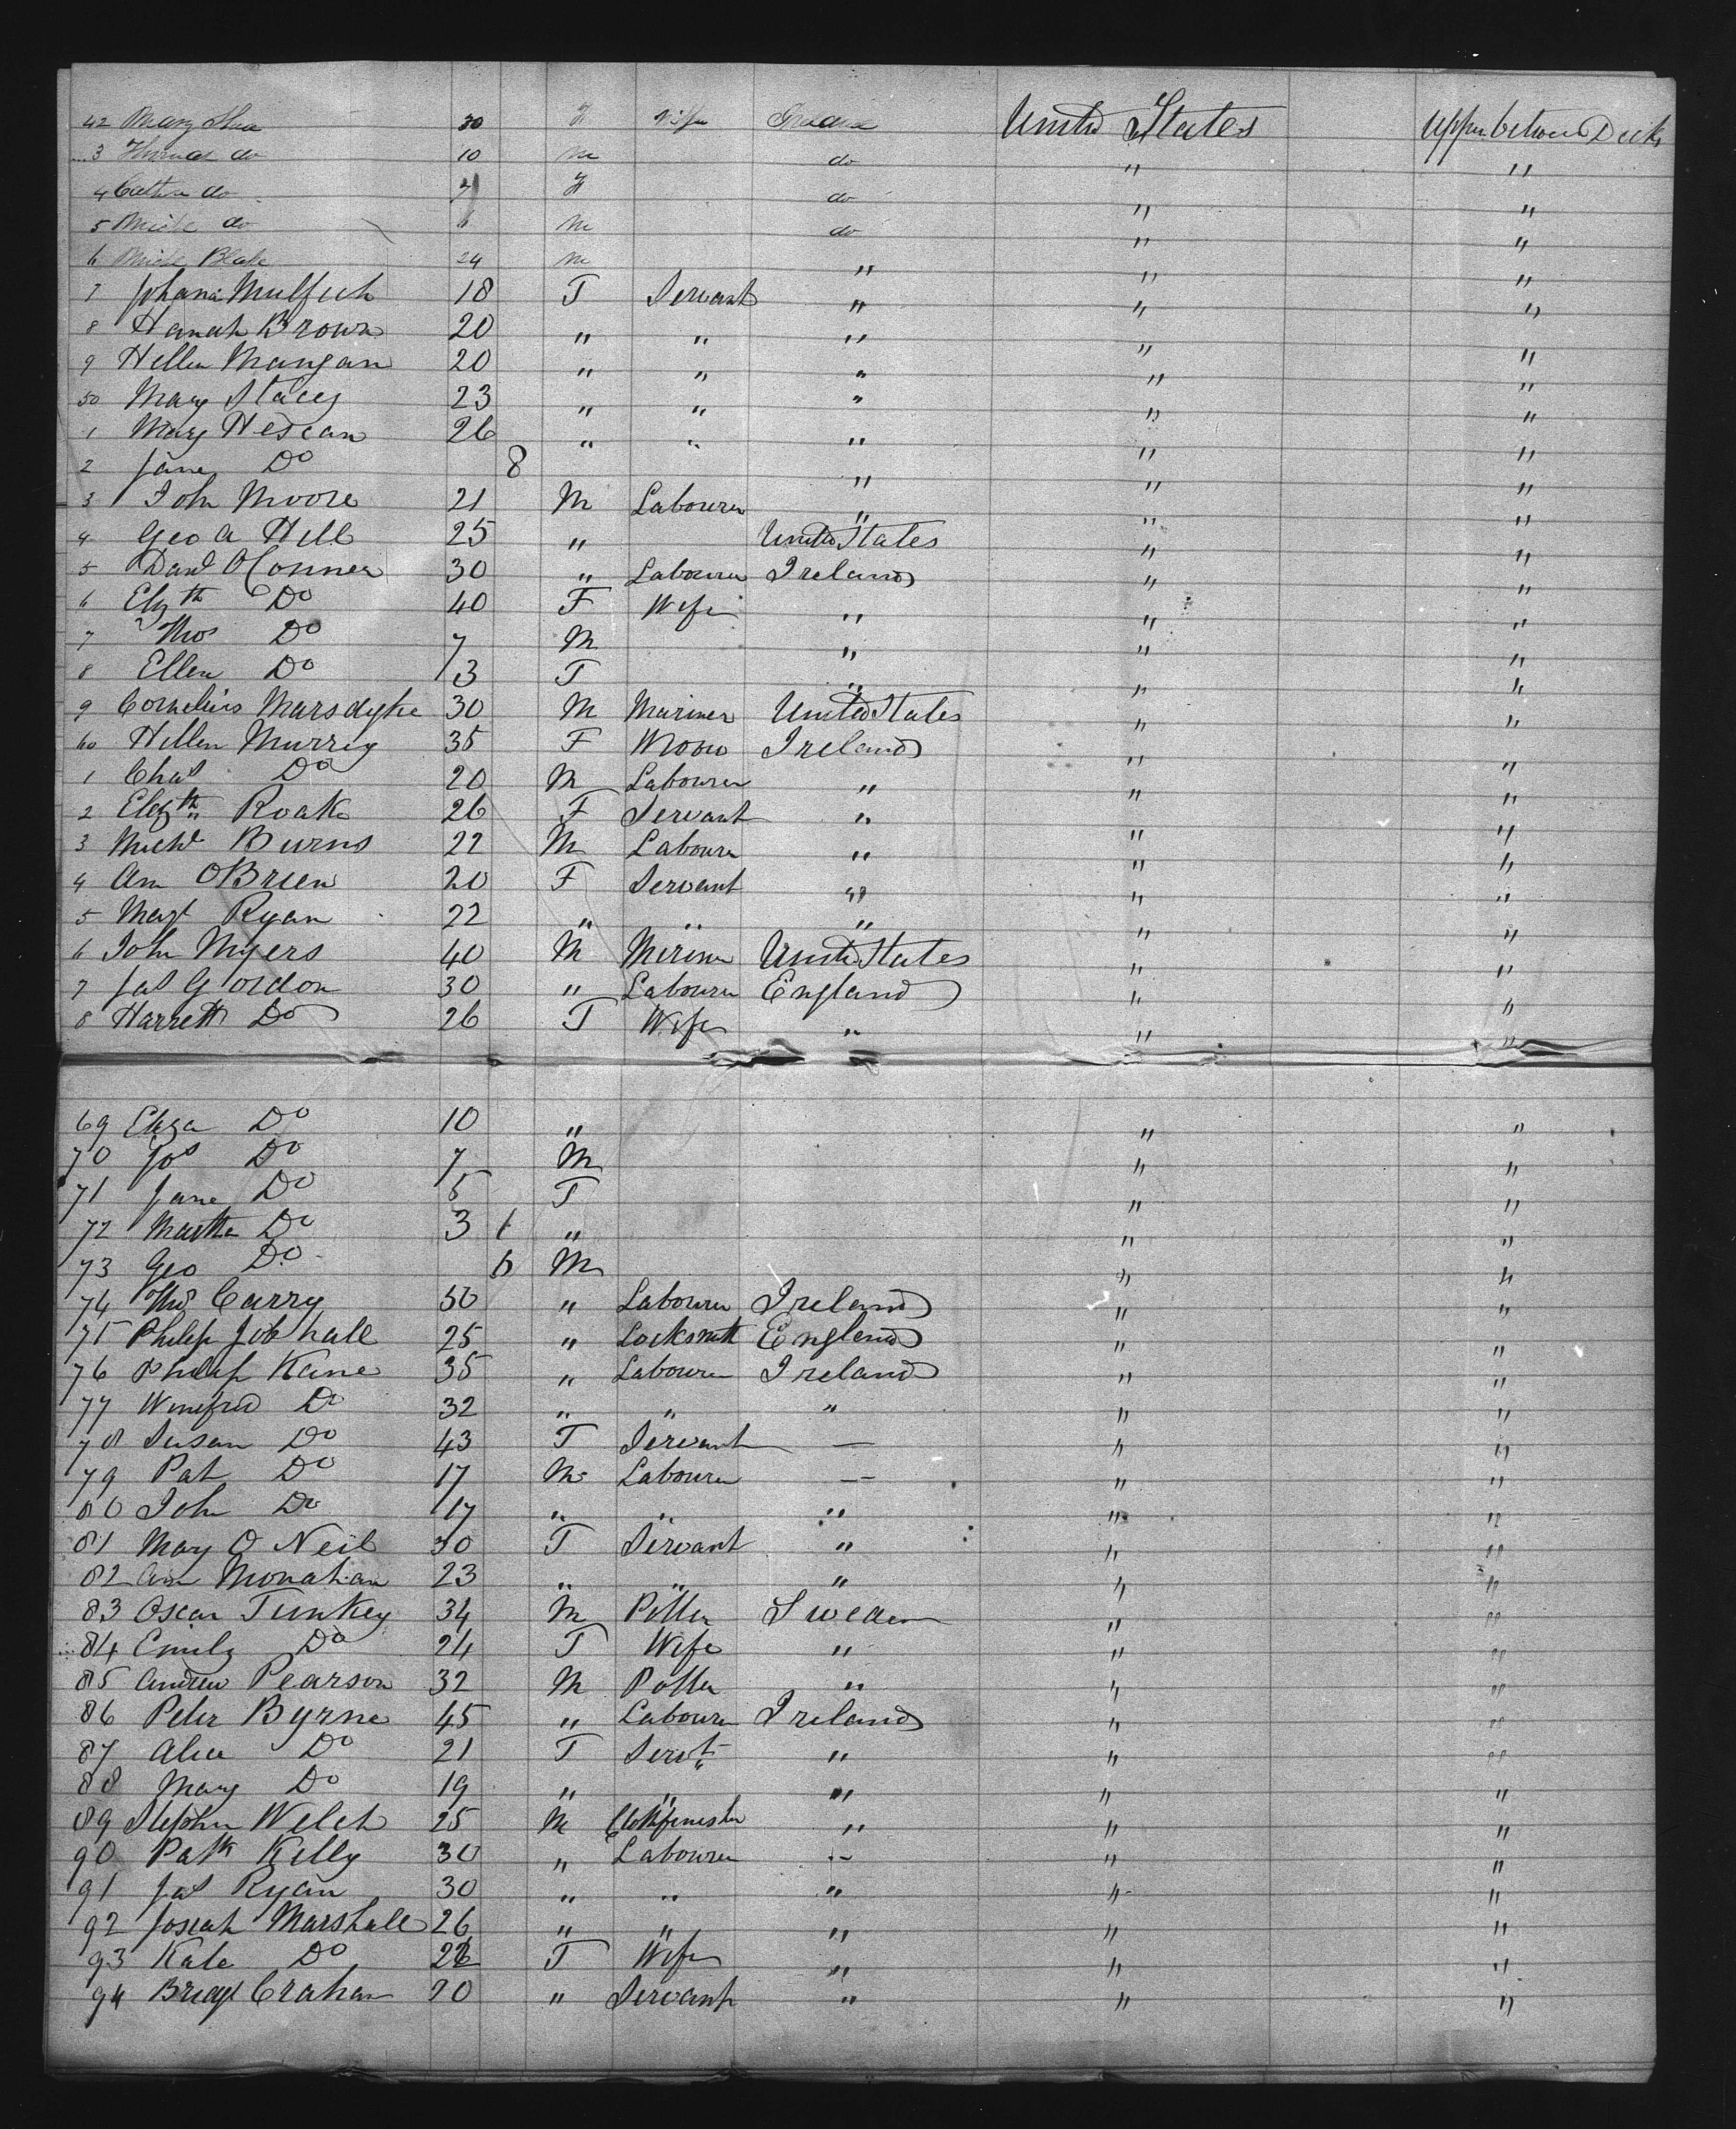 42 Mary Shea 30 F Wife Ireland United States Upper between Decks
3 Thomas do 10 M do " "
4 Cathe do 7 F do " "
5 Michl do 6 M do " "
6 Michl Blake 24 M " " "
7 Johana 18 F Servant " " "
8 Hanah Brown 20 " " " " "
9 Hellen Mangan 20 " " " " "
50 Mary Stacy 23 " " " " "
1 Mary Hescan 26 " " " " "
2 Jane Do 8 " " "
3 John Moore 21 M Labourer " " "
4 Geo A Hill 25 " United States " "
5 Danl O Conner 30 " Labourer Ireland " "
6 Elzth Do 40 F Wife " " "
7 Thos Do 7 M " " "
8 Ellen Do 13 F " " "
9 Cornelius Marsdyke 30 M Mariner United States " "
60 Hellen Murrey 35 F Ireland " "
1 Chas Do 20 M Labourer " " "
2 Elizth Roake 26 F Servant " " "
3 Michl Burns 22 M Labourer " " "
4 Ann OBrien 20 F Servant " " "
5 Margt Ryan 22 " " " " "
6 John Myers 40 M Meriner United States " "
7 Jas Gordon 30 " Labourer England " "
8 Harrett Do 26 F Wife " " "
69 Eliza Do 10 " " "
70 Jos Do 7 M " "
71 Jane Do 5 F " "
72 Martha Do 3 " " "
73 Geo Do 6 M " "
74 Thos Carry 50 " Labourer Ireland " "
75 Philip Jobhall 25 " Locksmith England " "
76 Philip Kane 35 " Labourer Ireland " "
77 Winefred Do 32 " " " " "
78 Susan Do 43 F Servant — " "
79 Pat Do 17 M Labourer — " "
80 John Do 17 " " " " "
81 Mary O Neil 30 F Servant " " "
82 Ann Monahan 23 " " " " "
83 Oscar Tunkey 34 M Potter Sweden " "
84 Emily Do 24 F Wife " " "
85 Andrew Pearson 32 M Potter " " "
86 Peter Byrne 45 " Labourer Ireland " "
87 Alice Do 21 F Servt " " "
88 Mary Do 19 " " " " "
89 Stephen Welch 25 M " " "
90 Patk Kelly 30 " Labourer " " "
91 Jas Ryan 30 " " " " "
92 Josiah Marshall 26 " " " " "
93 Kate Do F Wife " " "
94 Bridgt Craham 20 " Servant " " "